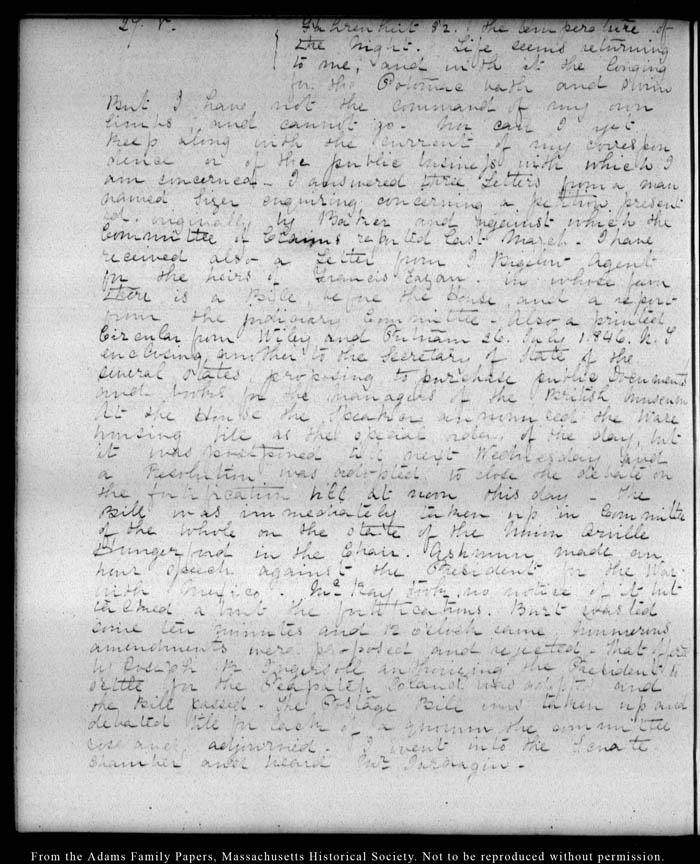 27. V. Fahrenheit 82. the temperature of
the Night. Life seems returning
to me; and with it the longing
for the Potomac bath and swim
But I have not the command of my own
limbs, and cannot go. Nor can I yet
keep along with the current of my correspon
dence or of the public business with which I
am concerned. I answered three Letters from a man
named Sizer enquiring concerning a petition present
ed originally by Baker and against which the
Committee of Claims reported last March. I have
received also a Letter from Bigelow Agent
for the heirs of Francis in whose favr
there is a Bill, before the House, and a report
from the judiciary Committee. Also a printed
Circular from Wiley and Putnam 26. July 1846. N.Y
enclosing another to the Secretary of State of the
several States, proposing to purchase public Documents
and books for the managers of the British Museum
At the House the Speaker announced the Ware
housing bill as the special order of the day, but
it was postponed till next Wednesday and
a Resolution was adopted to close the debate on
the fortification bill at noon this day - the
Bill was immediately taken up in Committee
of the whole on the state of the Union Orville
Hungerford in the Chair. Ashmun made an
hour speech against the President for the War
with Mexico. McKay took no notice of it but
talked about the fortifications. Burt wasted
some ten minutes and 12 o'clock came, numerous
amendments were proposed and rejected. That offered
by Joseph R. Ingersoll authorizing the President to
settle for the Peapatch Island was adopted and
the Bill passed. The Postage Bill was taken up and
debated till for lack of a quorum the committee
rose and adjourned. I went into the Senate
chamber and heard Mr Jarnagin.
From the Adams Family Papers, Massachusetts Historical Society. Not to be reproduced without permission.